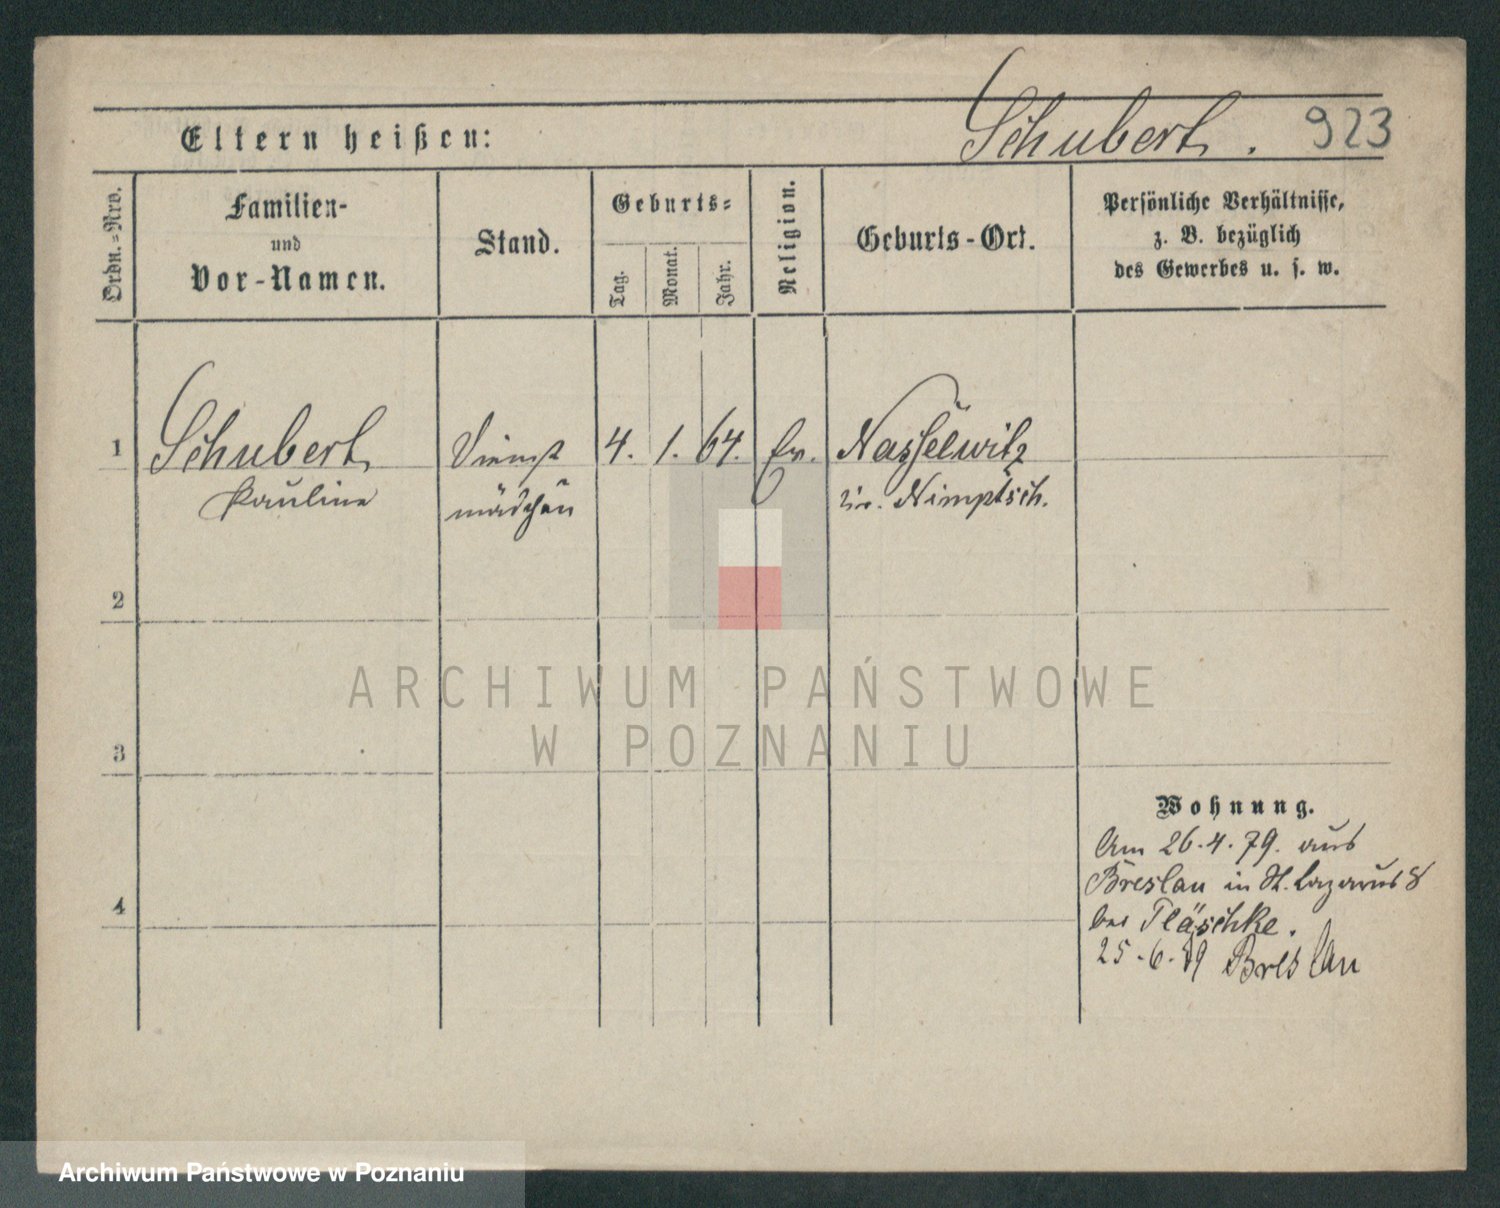 Eltern heißen:
Schubert. 923
Ordn.-Nro.
Familien-
und
Vor-Namen.
Stand.
Geburts-
Tag.
Monat.
Jahr.
Religion.
Geburts-Ort.
Persönliche Verhältnisse,
z. B. bezüglich
des Gewerbes u. s. w.
1 Schubert Dienst 4. 1. 64. Ev. Nasselwitz
Pauline mädchen Kr. Nimptsch.
2
3
4
Wohnung.
Am 26.4.79. aus
Breslau in St. Lazarus 8
bei Fläschke.
25.6.79 Breslau
ARCHIWUM PAŃSTWOWE
W POZNANIU
Archiwum Państwowe w Poznaniu